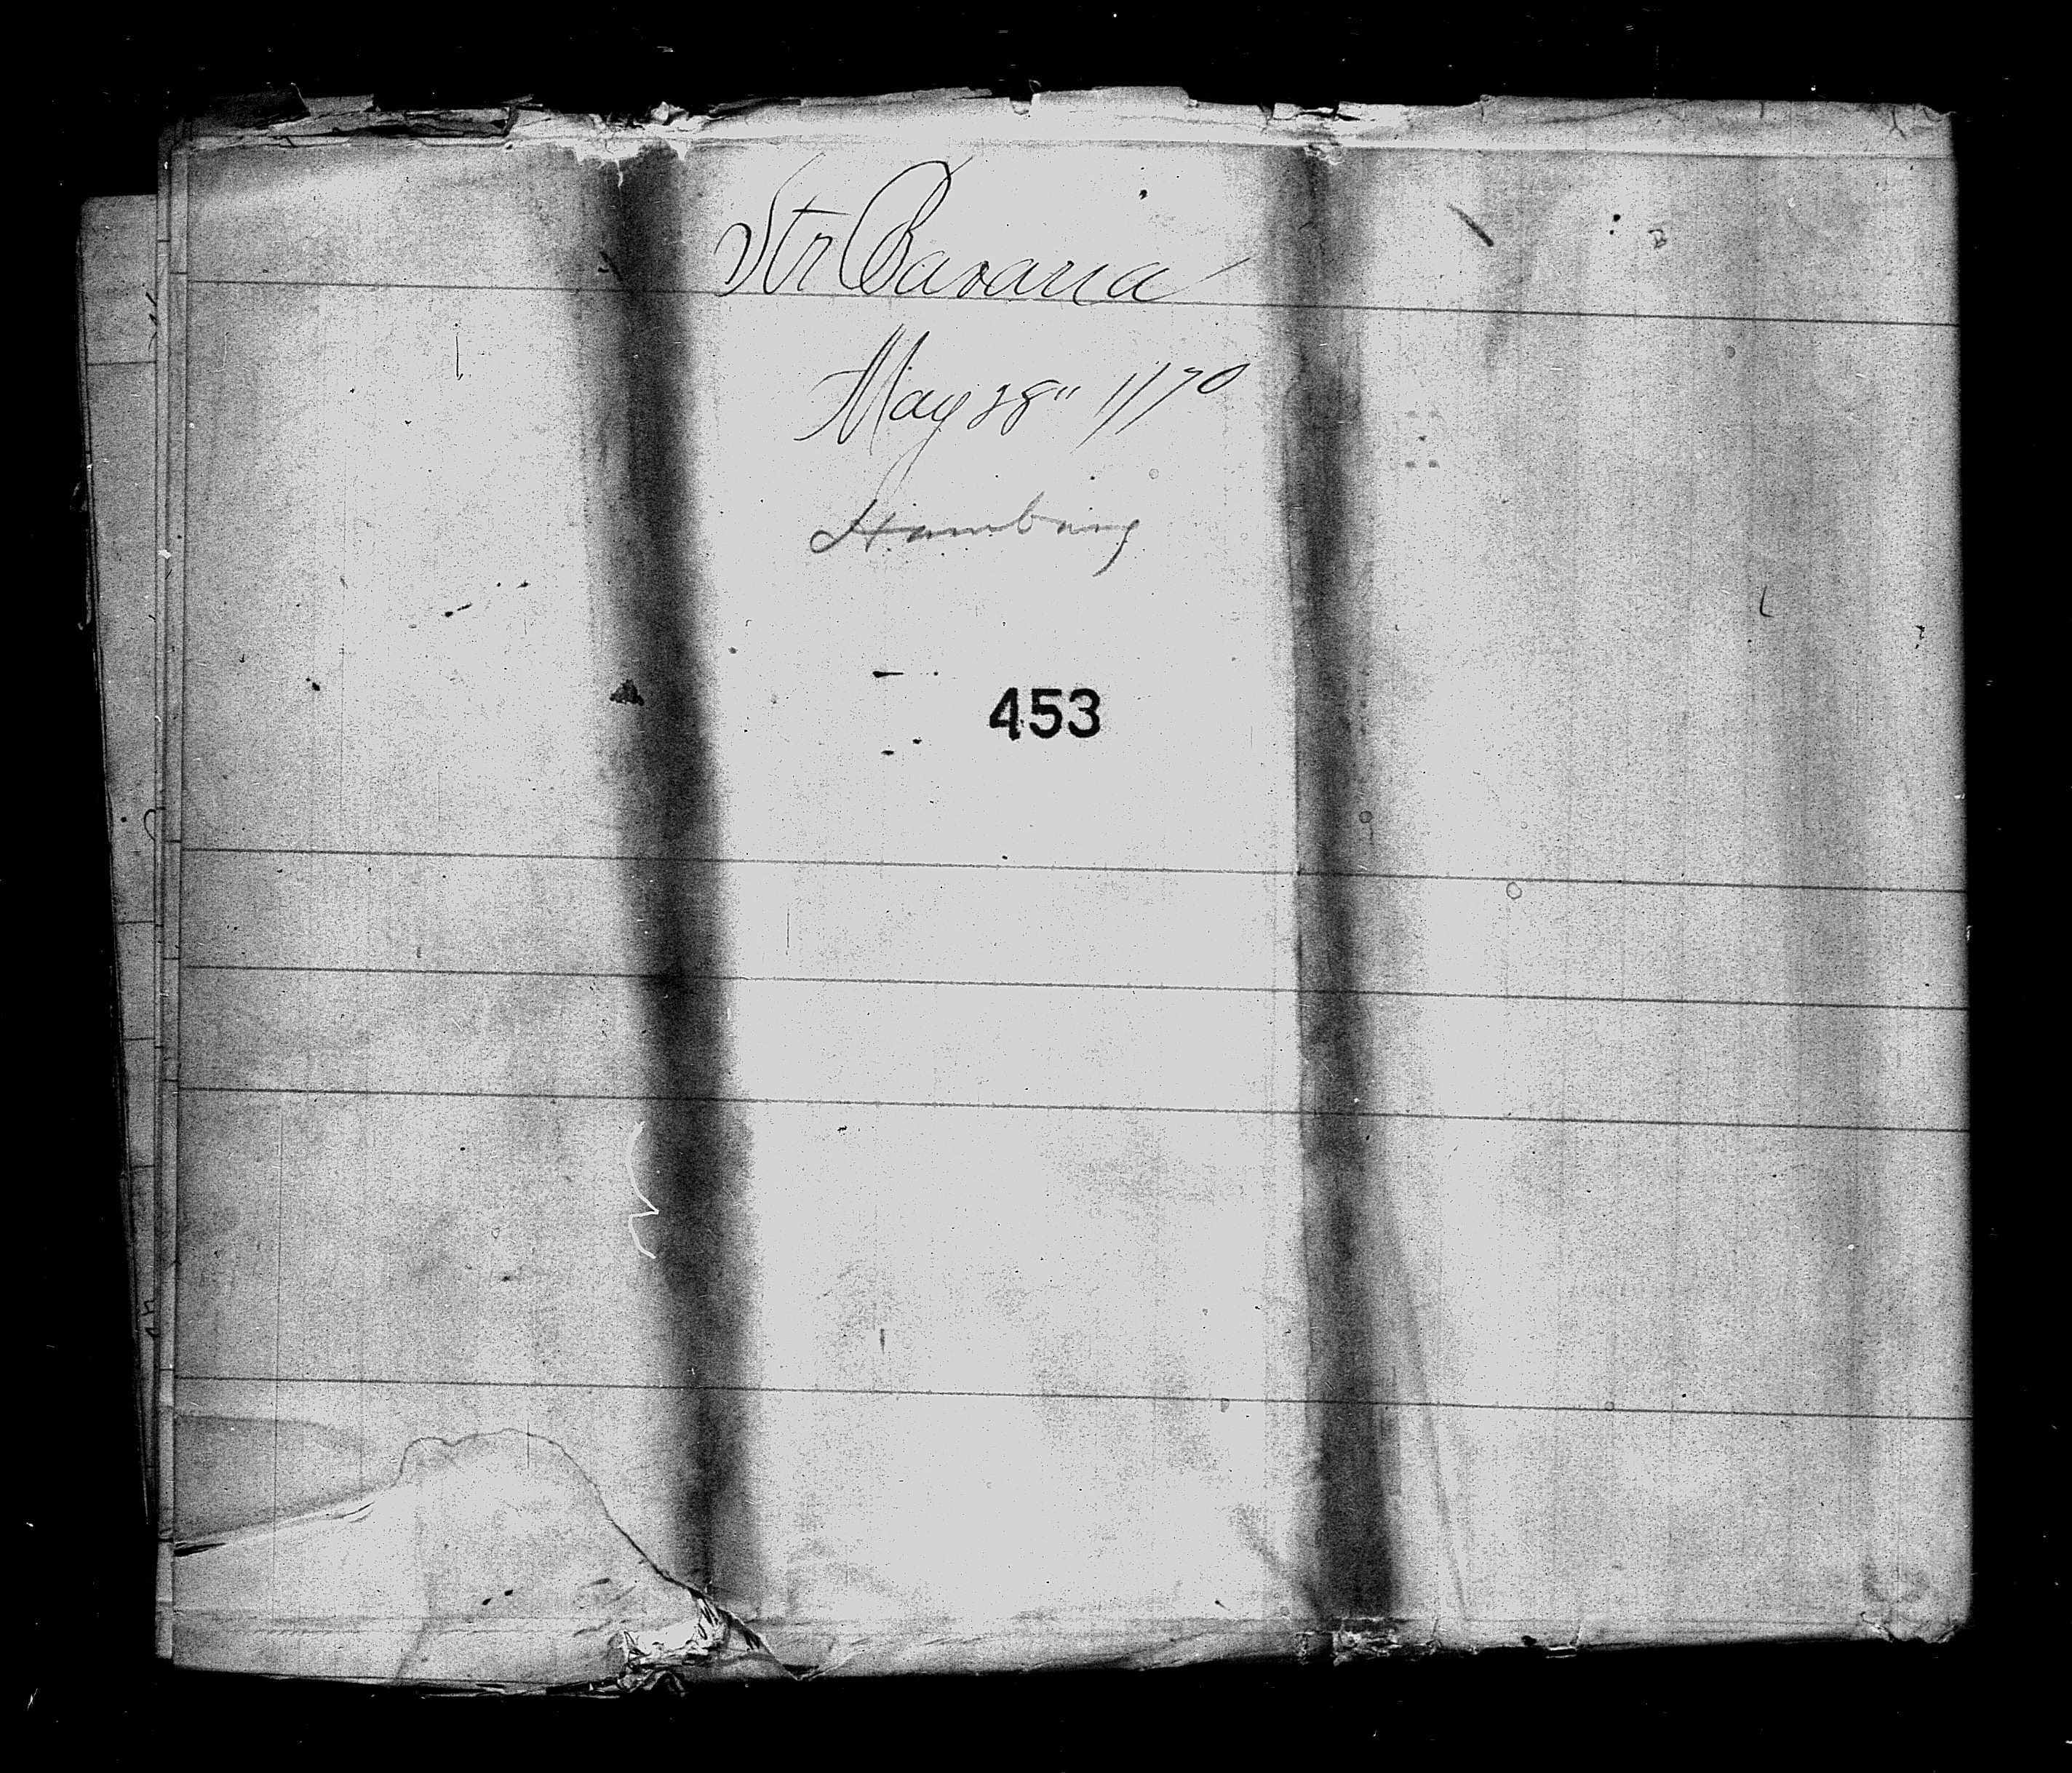 Str Bavaria
May 28" 1870
Hamburg
453